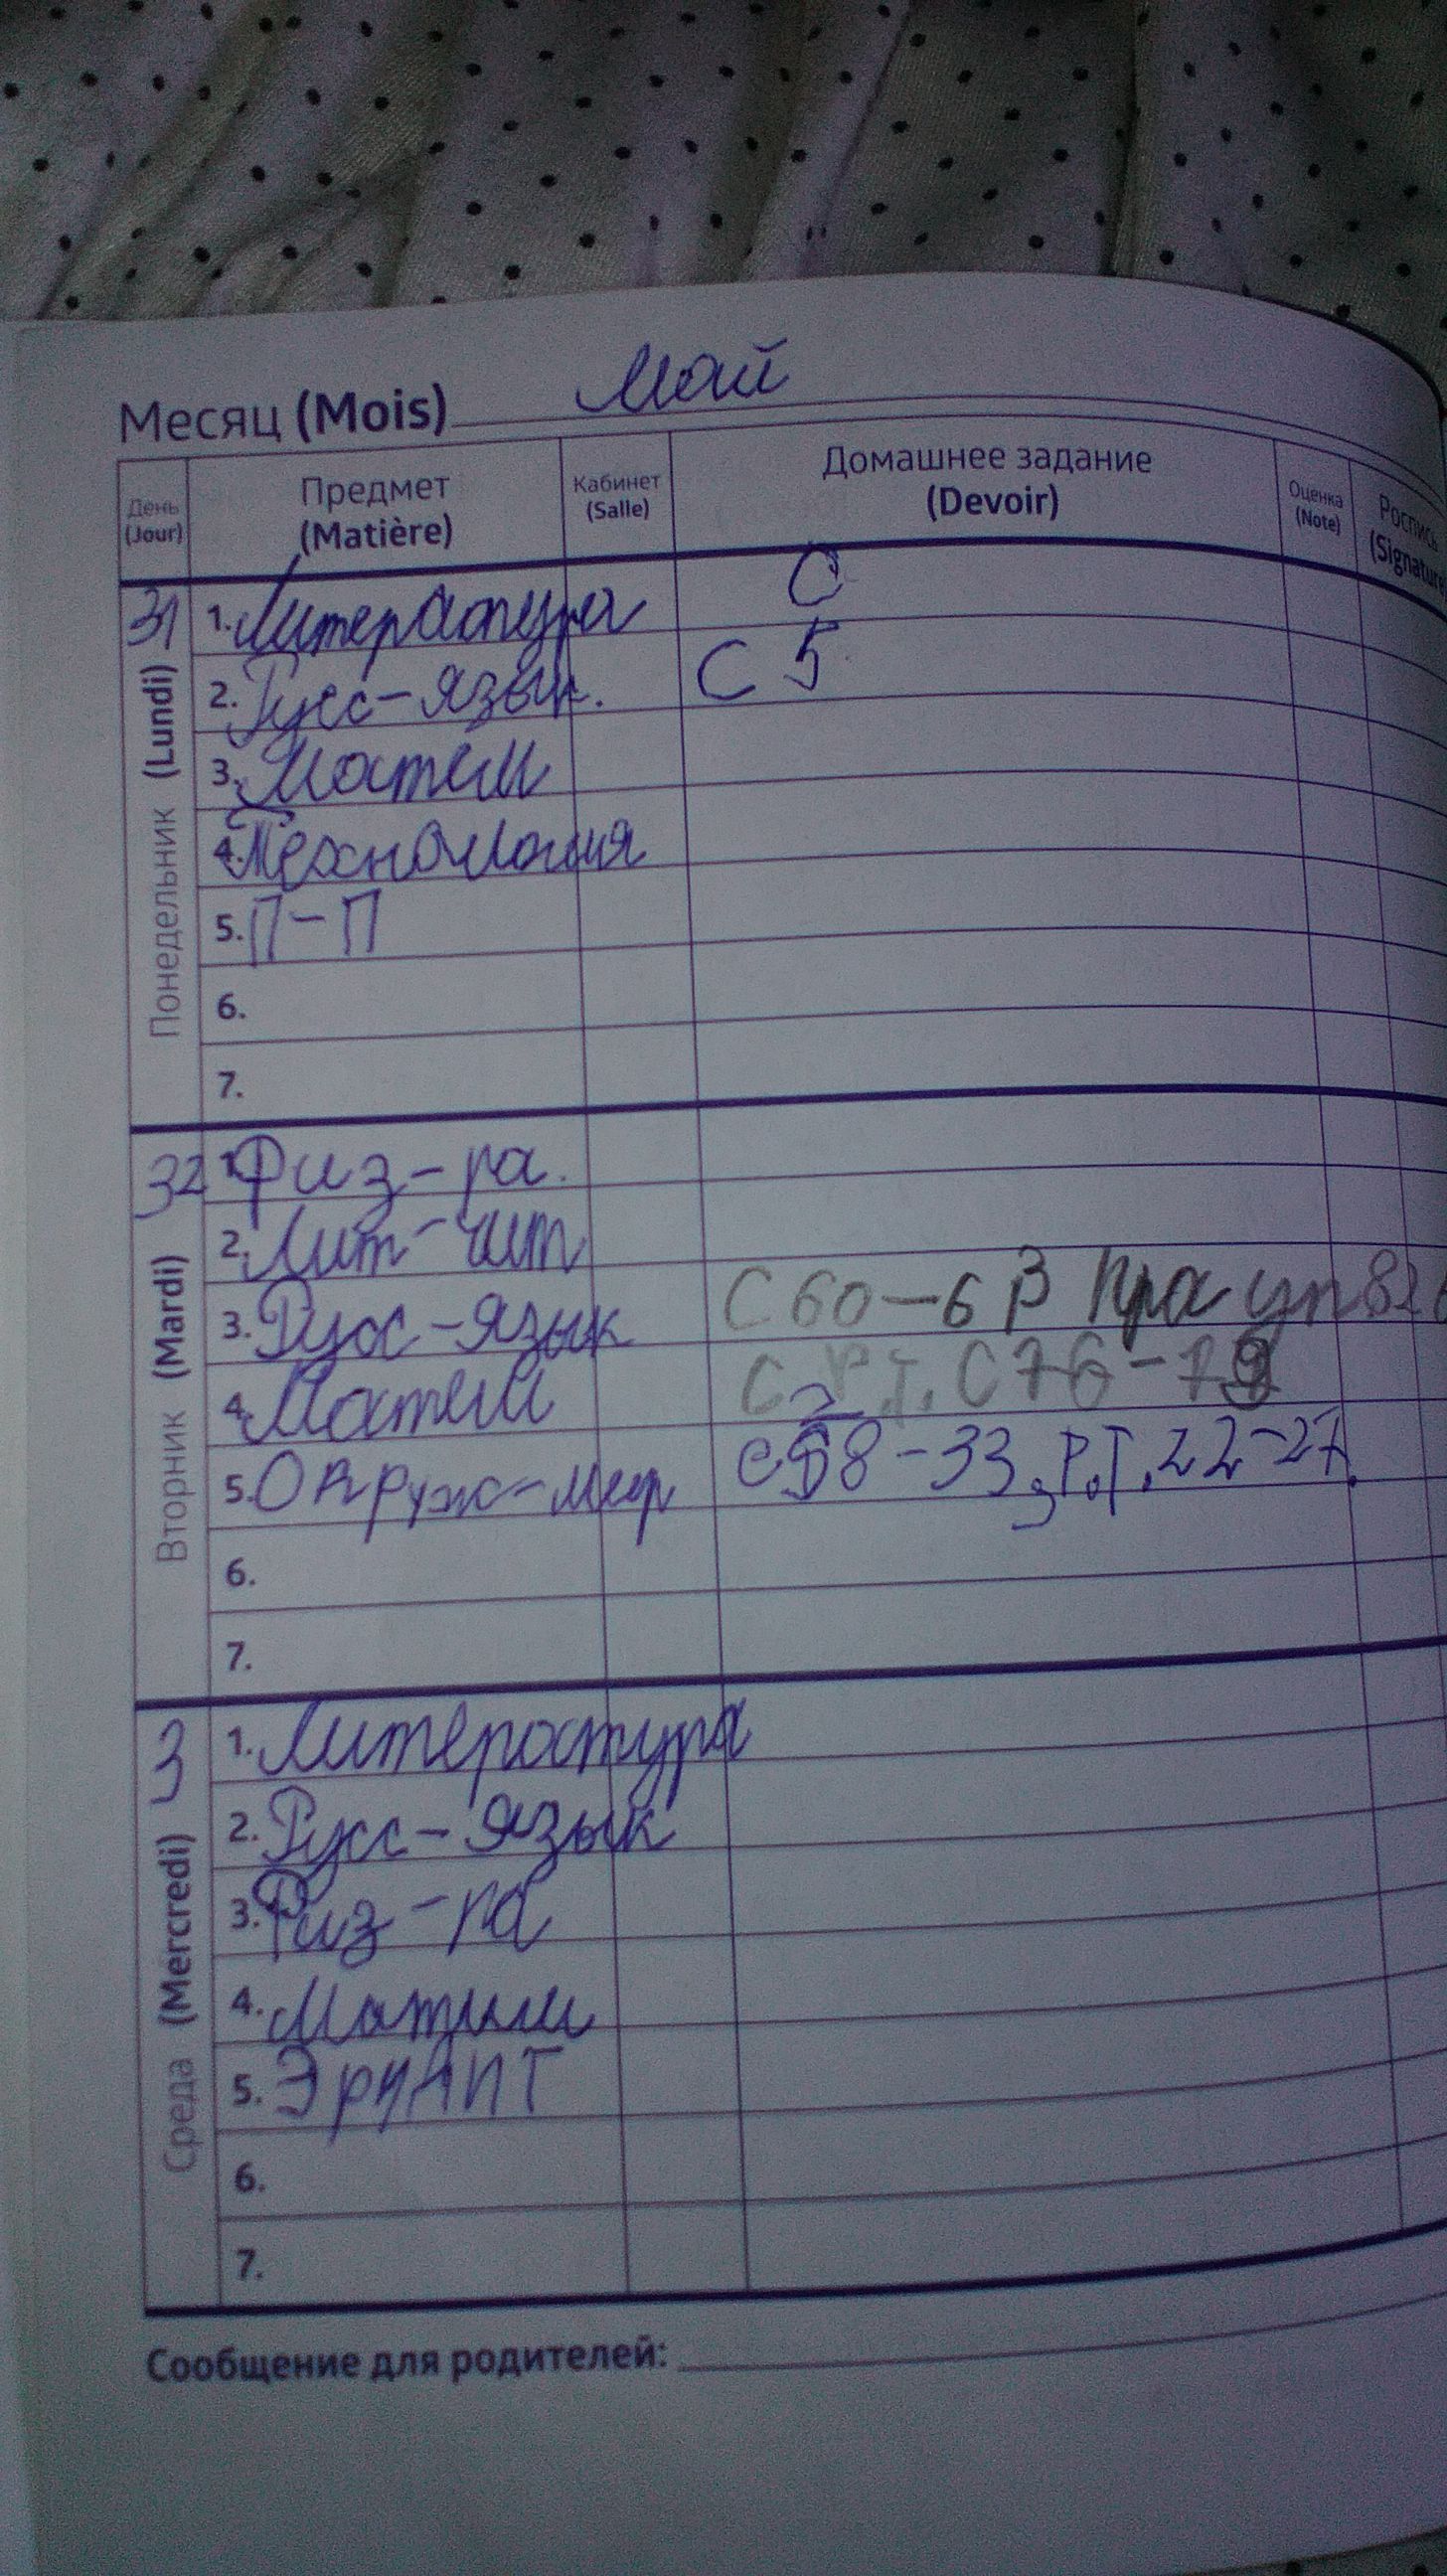 Месяц (Mois) Май
День (Jour) Предмет (Matière) Кабинет (Salle) Домашнее задание (Devoir) Оценка (Note) Роспись (Signature
31 Понедельник (Lundi)
1. Литература С
2. Русс-язык. С 5
3. Матем
4. Технология
5. П-П
6.
7.
32 Вторник (Mardi)
1. Физ-ра.
2. Лит-чит
3. Русс-язык С 60-6 Пра уп 82
4. Матем С Р.Т. С 76-79
5. Окруж-мир 8-33, Р.Т. 22-27.
6.
7.
3 Среда (Mercredi)
1. Литеротура
2. Русс-язык
3. Физ-ра
4. Матем
5.
6.
7.
Сообщение для родителей: